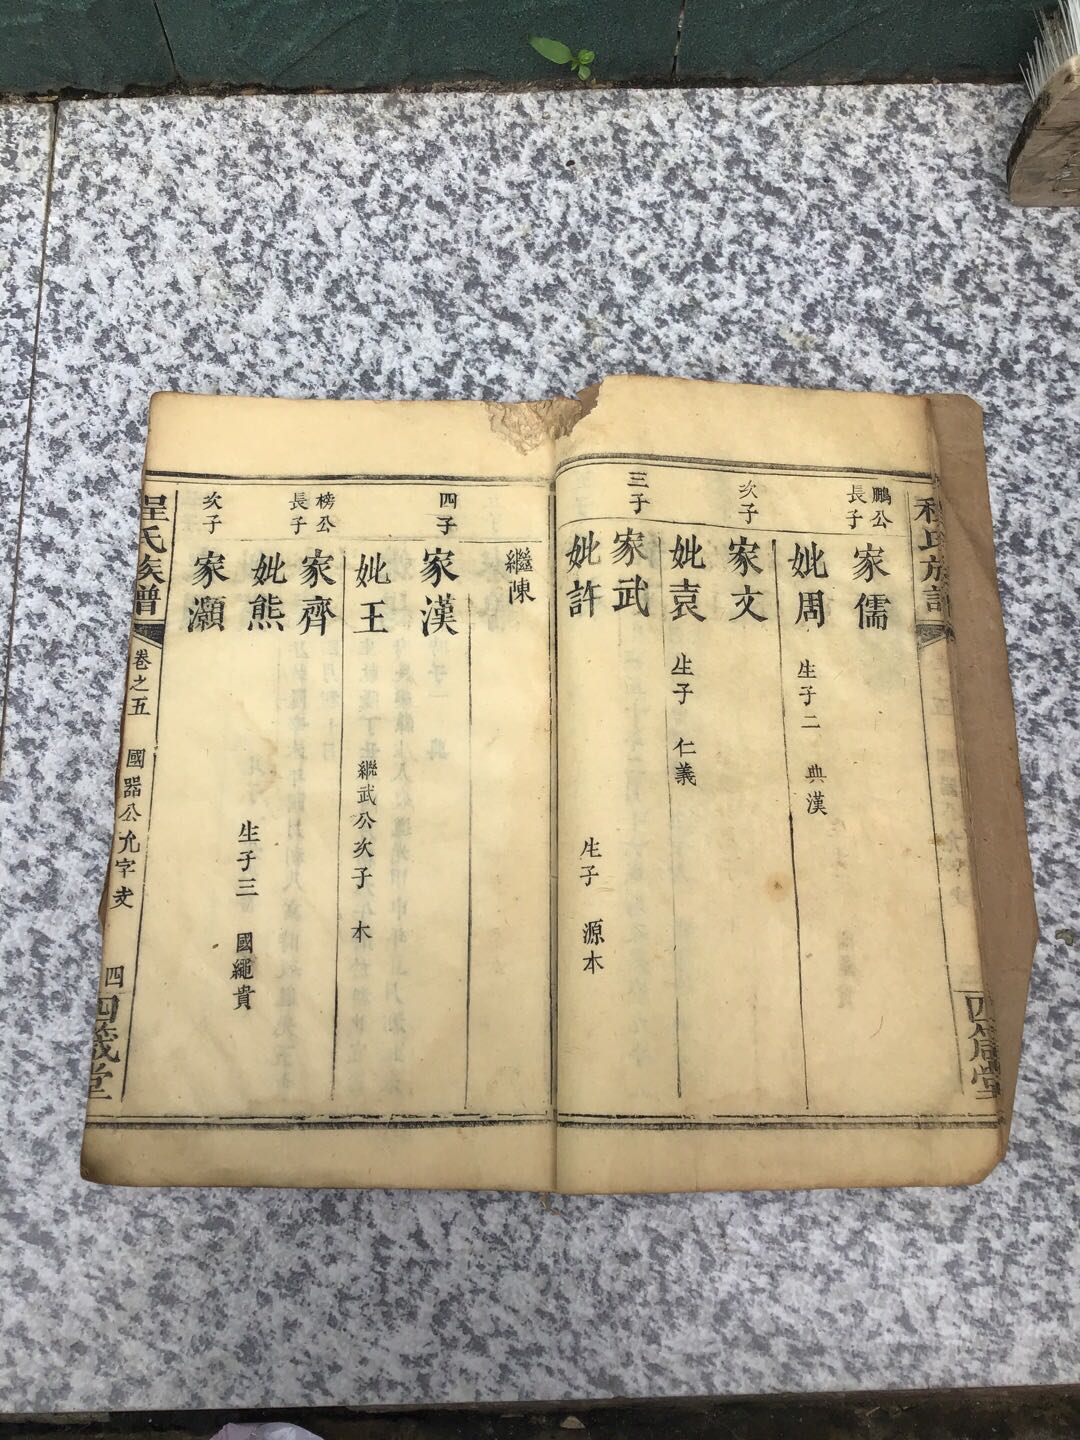 鵬公
長子
家儒
妣周 生子二 典漢
次子
家文
妣袁 生子 仁義
三子
家武
妣許 生子 源本
繼陳
四子
家漢
妣王 繼武公次子 本
榜公
長子
家齊
妣熊 生子三 國繩貴
次子
家灝
程氏族譜
卷之五
國器公允字支
四
四箴堂